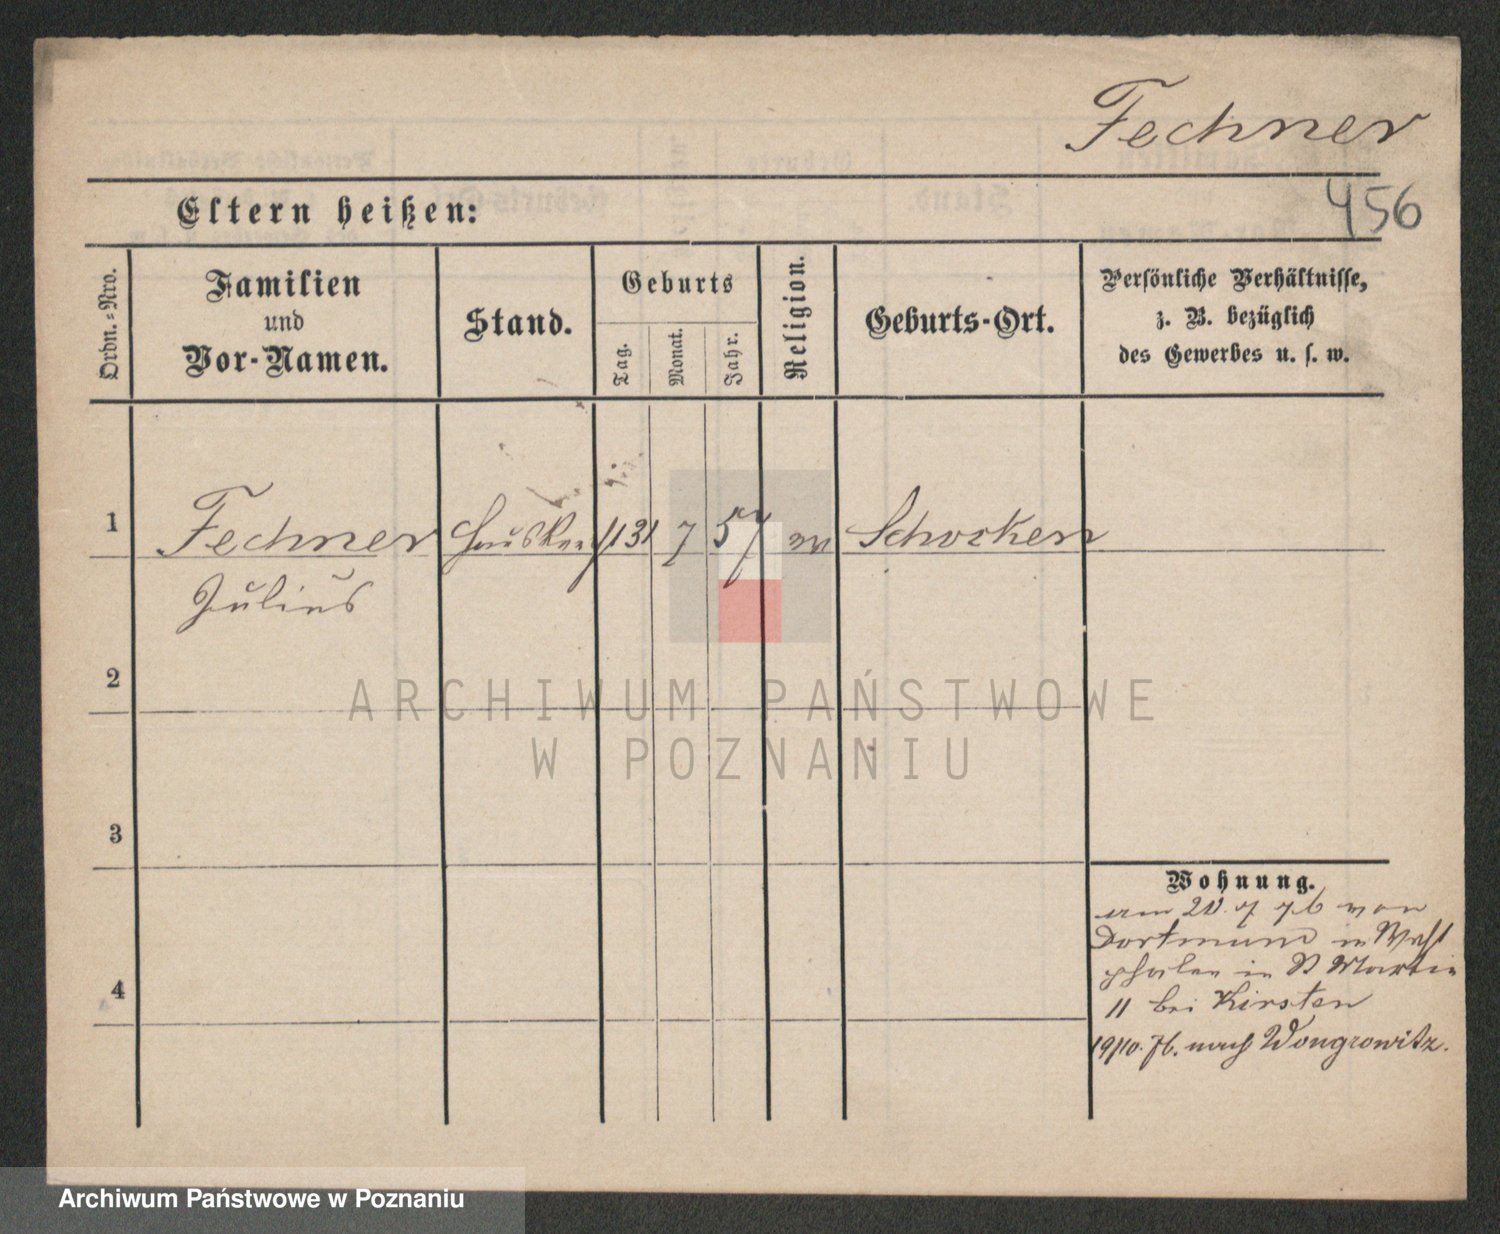 Fechner
456
Eltern heißen:
Ordn.-Nro.
Familien
und
Vor-Namen.
Stand.
Geburts
Tag.
Monat.
Jahr.
Religion.
Geburts-Ort.
Persönliche Verhältnisse,
z. B. bezüglich
des Gewerbes u. s. w.
1 Fechner 31 7 57 ev Schocken
Julius
2
3
4
Wohnung.
am 20. 7 76 von
Dortmund in West
phalen in St Martin
11 bei Kirsten
19/10. 76. nach Wongrowitz.
ARCHIWUM PAŃSTWOWE
W POZNANIU
Archiwum Państwowe w Poznaniu